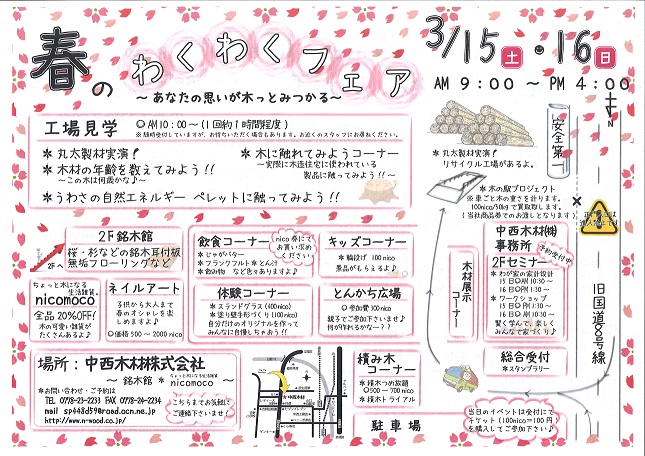 春のわくわくフェア
～あなたの思いが木っとみつかる～
3/15土・16日
AM 9:00 ～ PM 4:00
工場見学 ○AM10:00～(1回約1時間程度)
※随時受付していますが、お待ちいただく場合もあります。お近くのスタッフにお尋ねください。
＊丸太製材実演！
＊木材の年齢を数えてみよう!!
～この木は何歳かな♪～
＊うわさの自然エネルギー ペレットに触ってみよう!!
＊木に触れてみようコーナー
～実際に木造住宅に使われている
製品に触ってみよう!!～
＊丸太製材実演！
リサイクル工場があるよ。
安全第一
＊木の駅プロジェクト
※車ごと木の重さを計ります。
100nico/50kgで買取致します。
(当社商品券でのお渡しとなります)
2F銘木館
桜・杉などの銘木耳付板
無垢フローリングなど
2Fへ
飲食コーナー
nico券にて
お買い求め
ください
＊じゃがバター
＊フランクフルト＊とん汁
＊飲み物 など色々ありますよ♪
キッズコーナー
＊輪投げ 100nico
景品がもらえるよ♪
中西木材㈱
事務所
予約受付中
2Fセミナー
＊わが家の家計設計
15日◎AM10:30～
16日◎PM1:30～
＊ワークショップ
15日◎PM1:30～
16日◎AM10:30～
賢く学んで、楽しく
みんなで家づくり♪
木材展示
コーナー
旧国道8号線
ちょっと木になる
生活雑貨。
nicomoco
全品20%OFF!
木の可愛い雑貨が
たくさんあるよ♪
ネイルアート
子供から大人まで
春のオシャレを楽
しめますよ♪
◎価格500～2000nico
体験コーナー
＊スタンドグラス(400nico)
＊塗り壁手形づくり(100nico)
自分だけのオリジナルを作って
みんなに自慢しちゃおう!!
とんかち広場
◎参加費100nico
親子でご参加下さいませ♪
何が作れるかな～??
総合受付
＊スタンプラリー
場所：中西木材株式会社
～銘木館＊
ちょっと木になる生活雑貨
nicomoco～
＊お問い合わせ・ご予約は
TEL 0778-23-2233 FAX 0778-24-2234
mail sp448d59@road.ocn.ne.jp
http://www.n-wood.co.jp/
こちらまでお気軽に
ご連絡下さいませ！
中西木材
積み木
コーナー
＊積木つめ放題
◎500～700nico
＊積木トライアル
駐車場
当日のイベントは受付にて
チケット(100nico=100円)
を購入してご参加下さい♪